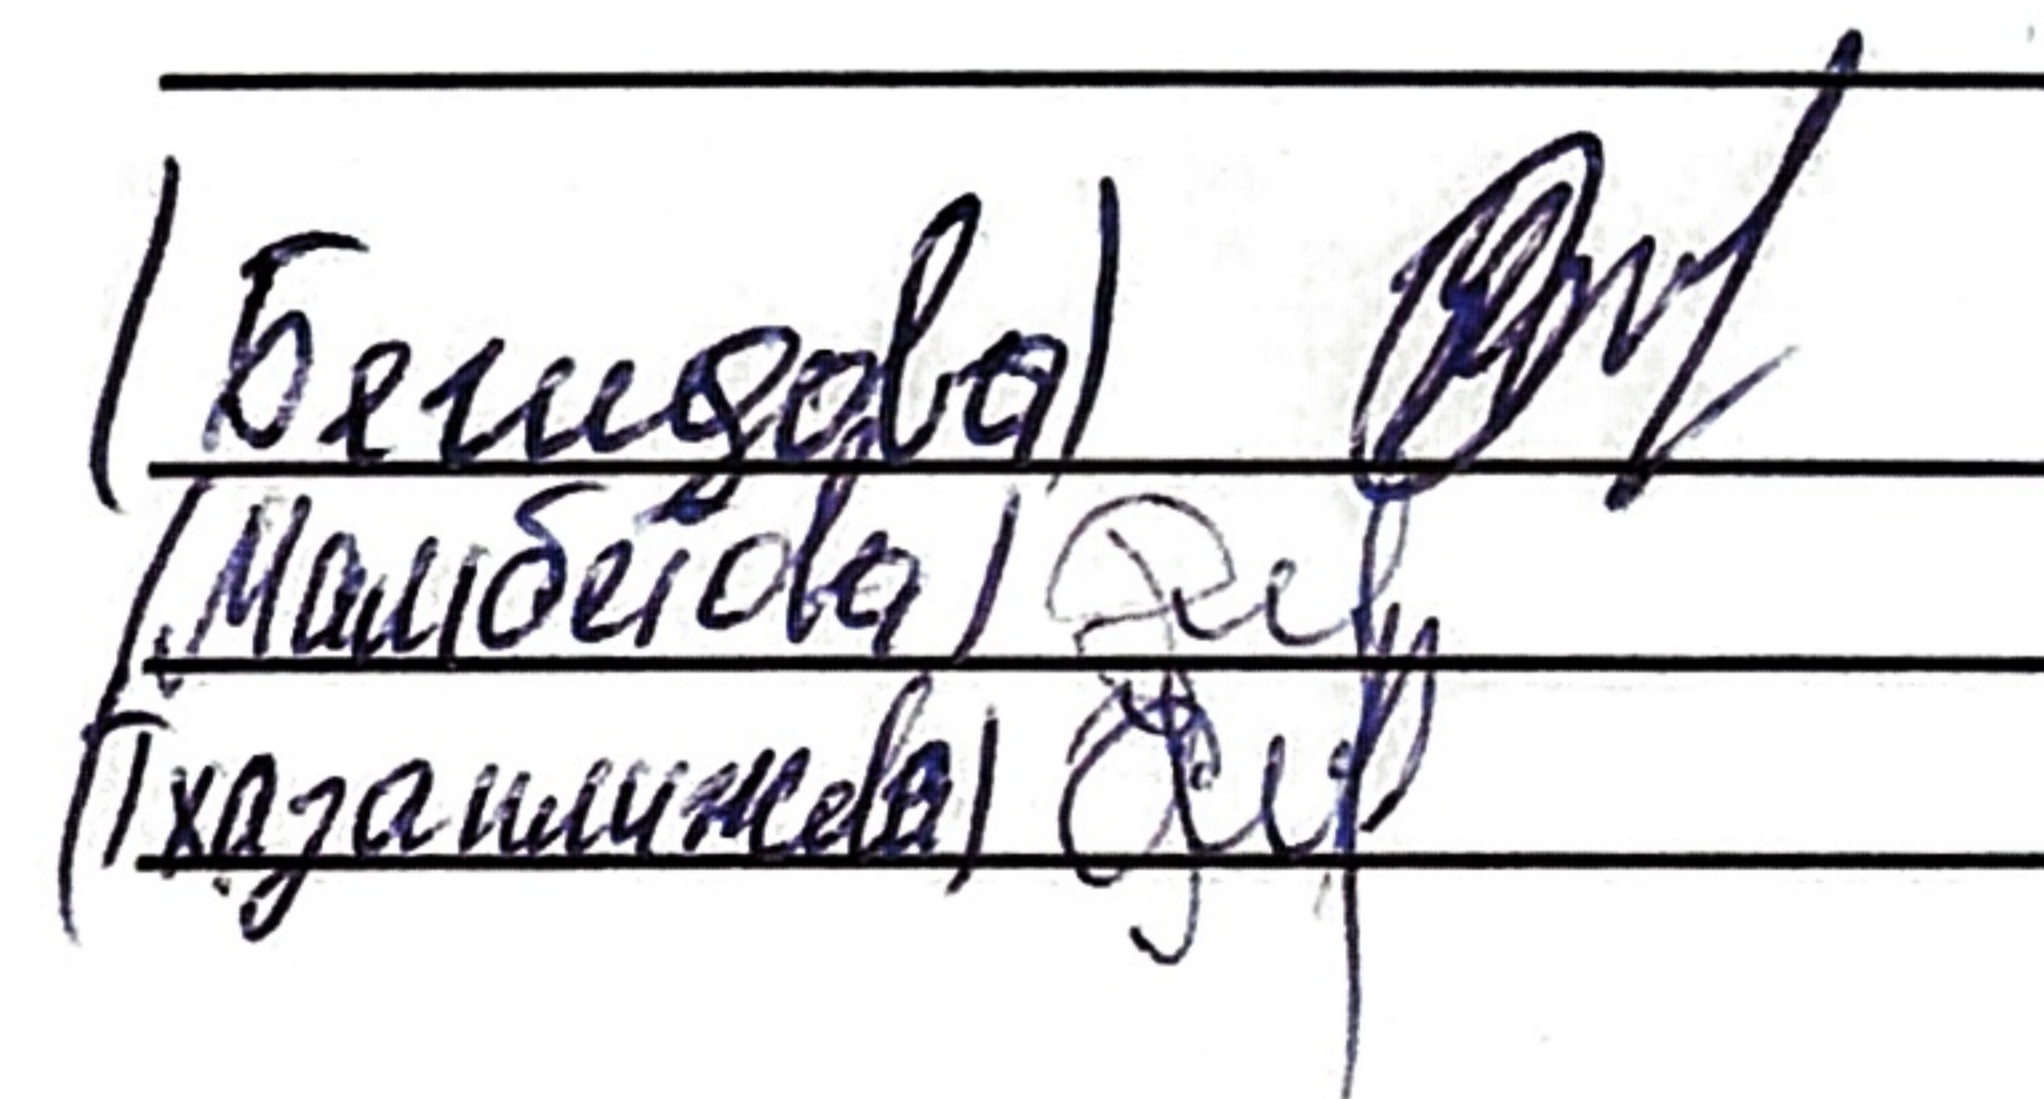 (Бегидова)
(Мамбетова)
(Тхазаплижева)